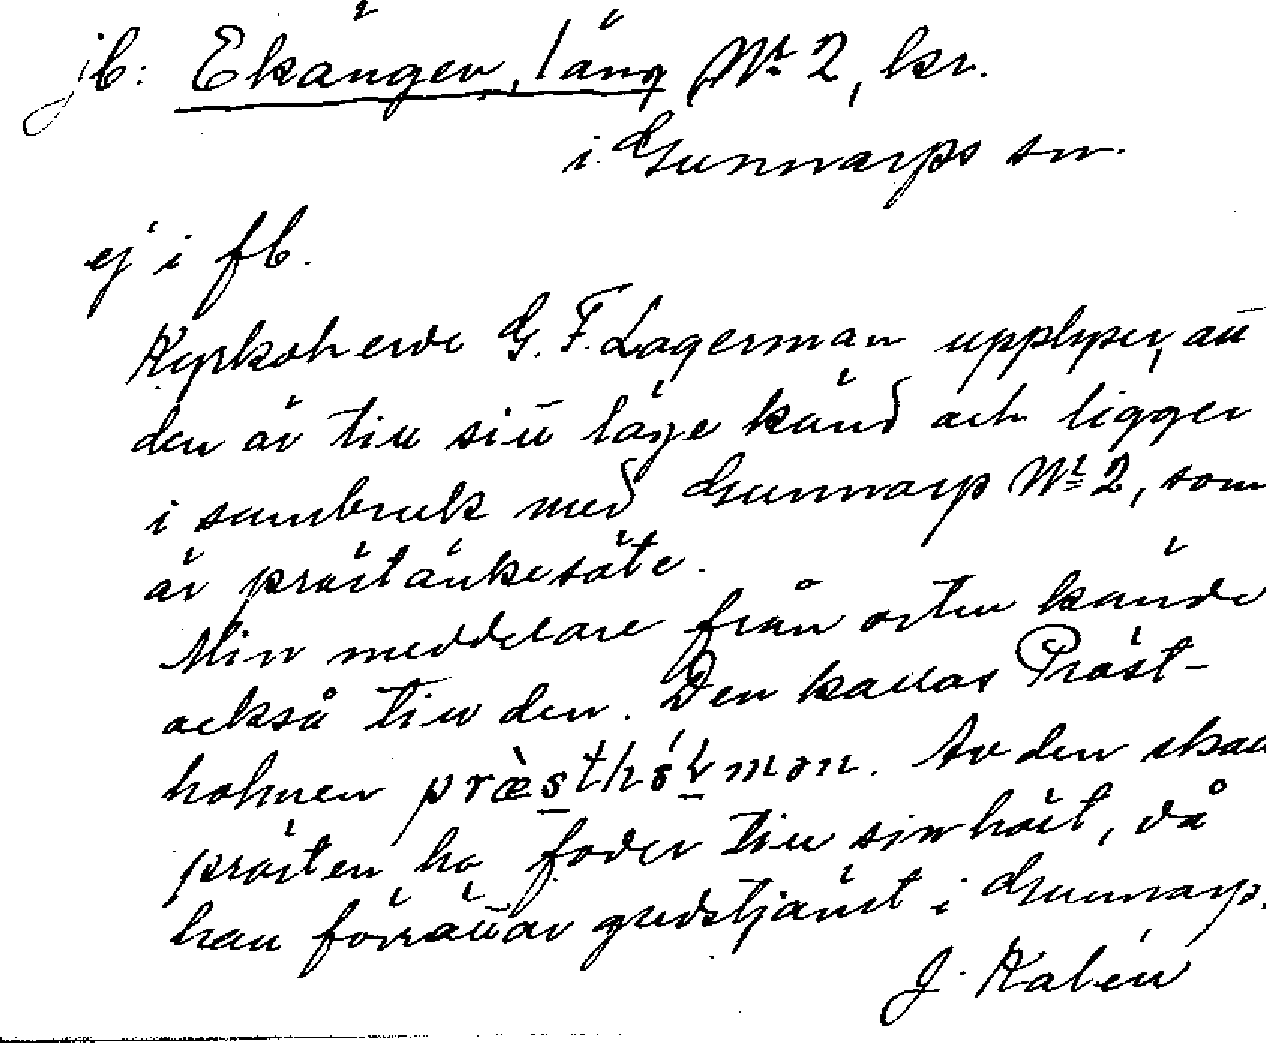 jb: Ekängen, läng Nr 2, kr.
i Gunnarps sn.
ej i fb.
Kyrkoherde G. F. Lagerman upplyser, att
den är till sitt läge känd och ligger
i sambruk med Gunnarp Nr 2, som
är prästänkesäte.
Min meddelare från orten kände
också till den. Den kallas Präst-
holmen præ̀sthólmɔn. Av den skall
prästen ha foder till sin häst, då
han förrättar gudstjänst i Gunnarp.
J. Kalén